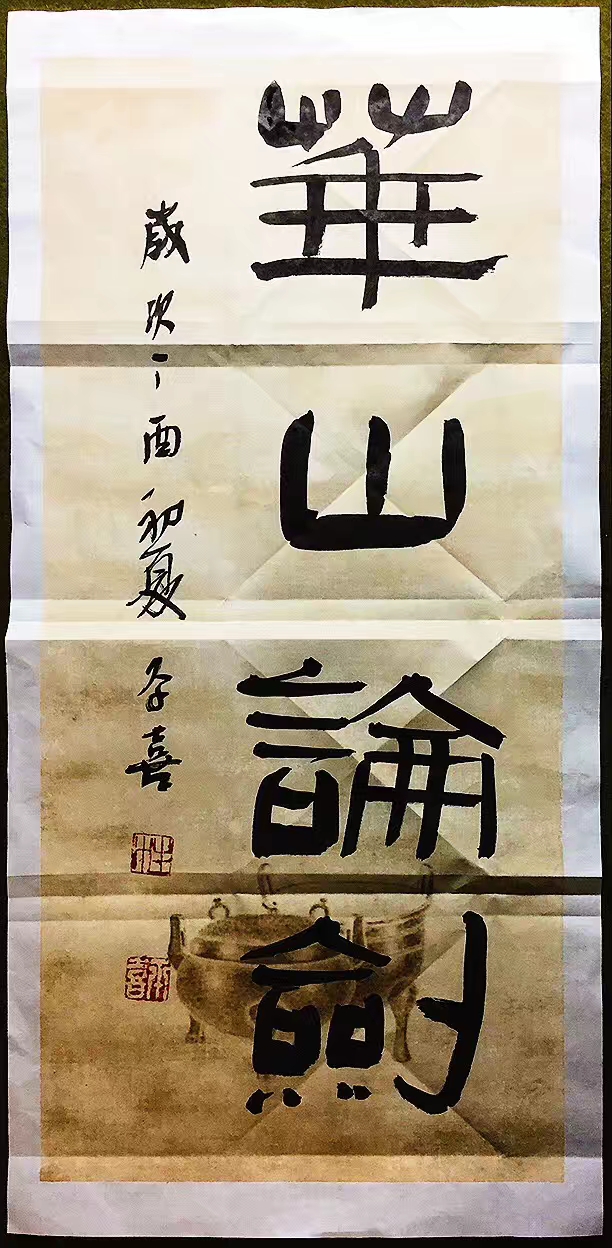 華山論劍
歲次丁酉初夏 喜
杜